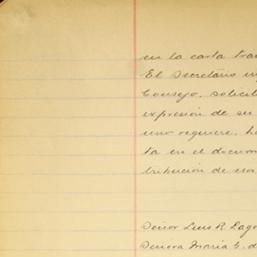 en la carta
El Secretario
Consejo, solicit
expresión de su
uno requiere,
ta en el docum
tribución de
Señor Luis R. Lago
Señora María G. d